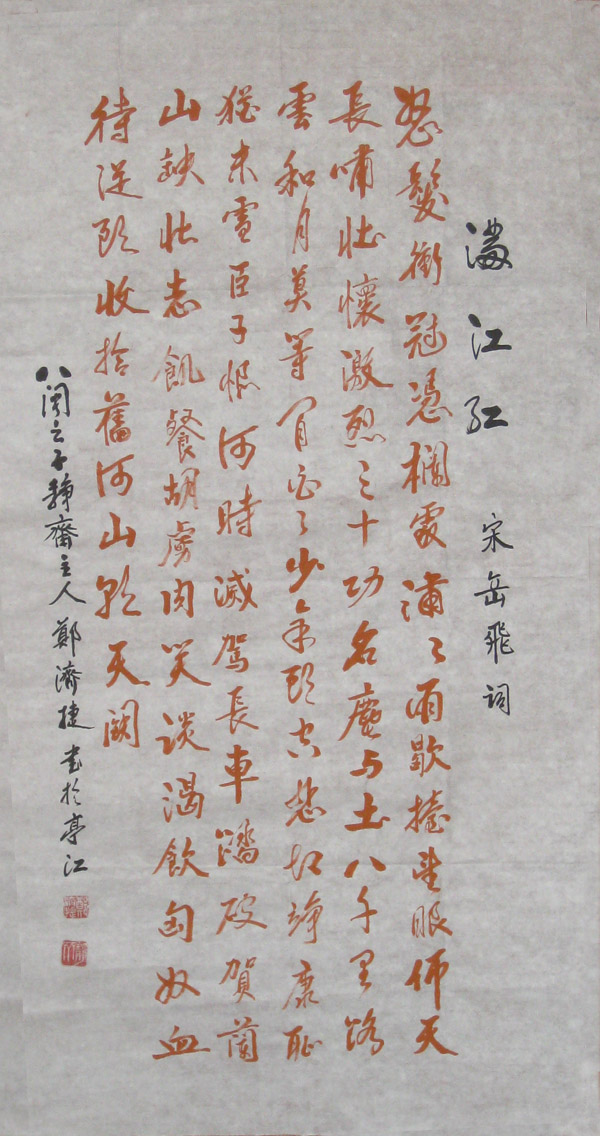 滿江紅
宋岳飛詞
怒髮衝冠憑欄處潚々雨歇擡望眼仰天
長嘯壯懷激烈三十功名塵与土八千里路
雲和月莫等閒白了少年頭空悲切靖康恥
猶未雪臣子恨何時滅駕長車踏破賀蘭
山缺壯志飢餐胡虜肉笑談渴飲匈奴血
待從頭收拾舊河山朝天闕
八閩之子靜齋主人鄭濟捷书於亭江